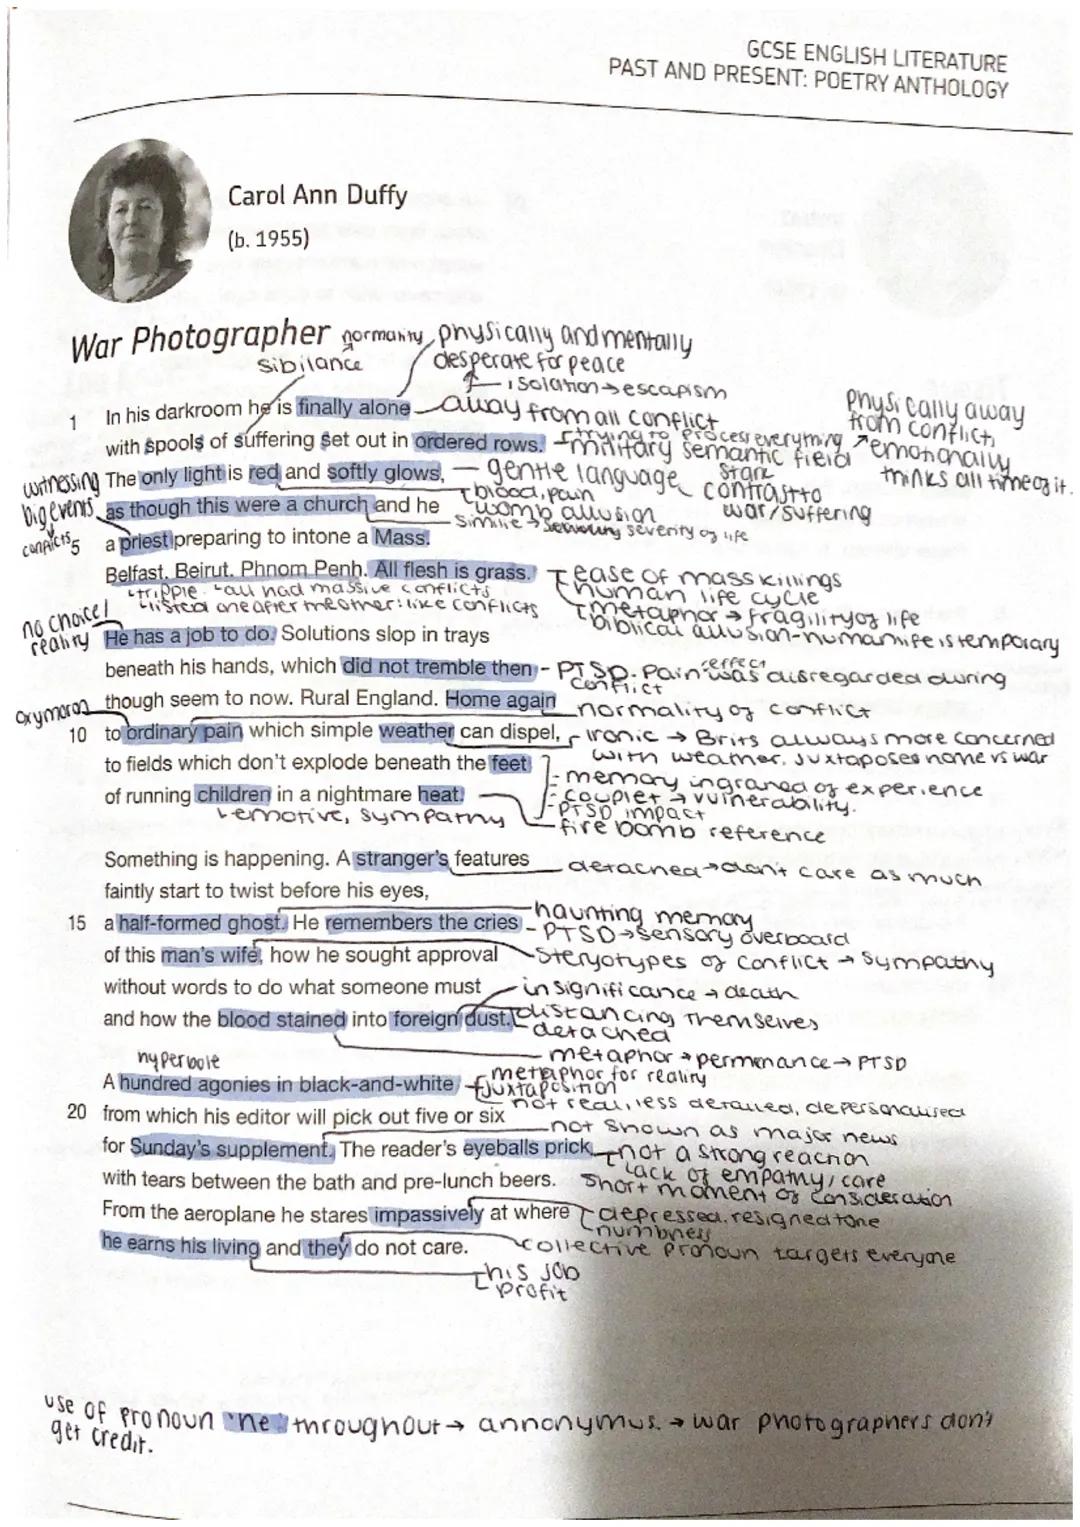 GCSE ENGLISH LITERATURE
PAST AND PRESENT: POETRY ANTHOLOGY
Carol Ann Duffy
(b. 1955)
War Photographer
normanity
physically and mentally
desperate for peace
sibilance
isolation→escapism
1 In his darkroom he is finally alone
away from all conflict
physically away
from conflict,
emotionally
thinks all time of it.
with spools of suffering set out in ordered rows.
trying to process everything
military semantic field
witnessing
big events
conflicts
The only light is red and softly glows,
gentle language
stark
contrast to
war/suffering
blood, pain
womb allusion
as though this were a church and he
similie → severity of life
5 a priest preparing to intone a Mass.
Belfast. Beirut. Phnom Penh. All flesh is grass.
ease of mass killings
human life cycle
metaphor → fragility of life
biblical allusion-human life is temporary
tripple
all had massive conflicts
listed one after the other: like conflicts
no choice!
reality
He has a job to do. Solutions slop in trays
beneath his hands, which did not tremble then
- PTSD. Pain was disregarded during
conflict
effect
though seem to now. Rural England. Home again
normality of conflict
oxymoron
10 to ordinary pain which simple weather can dispel,
ironic → Brits always more concerned
with weather. Juxtaposes home vs war
to fields which don't explode beneath the feet
- memory ingraned of experience
- couplet → vulnerability.
of running children in a nightmare heat.
- PTSD impact
fire bomb reference
emotive, sympathy
Something is happening. A stranger's features
detached→don't care as much
faintly start to twist before his eyes,
15 a half-formed ghost. He remembers the cries
haunting memory
- PTSD→sensory overboard
of this man's wife, how he sought approval
steryotypes of conflict → sympathy
without words to do what someone must
insignificance → death
and how the blood stained into foreign dust.
distancing themselves
detached
metaphor → permenance → PTSD
hyperbole
A hundred agonies in black-and-white
metaphor for reality
juxtaposition
not real, less detailed, depersonalised
20 from which his editor will pick out five or six
not shown as major news
for Sunday's supplement. The reader's eyeballs prick
not a strong reaction
lack of empathy/care
with tears between the bath and pre-lunch beers.
short moment of consideration
From the aeroplane he stares impassively at where
depressed, resigned tone
numbness
he earns his living and they do not care.
collective pronoun targets everyone
his job
profit
use of pronoun "he" throughout → annonymus. → war photographers don't
get credit.